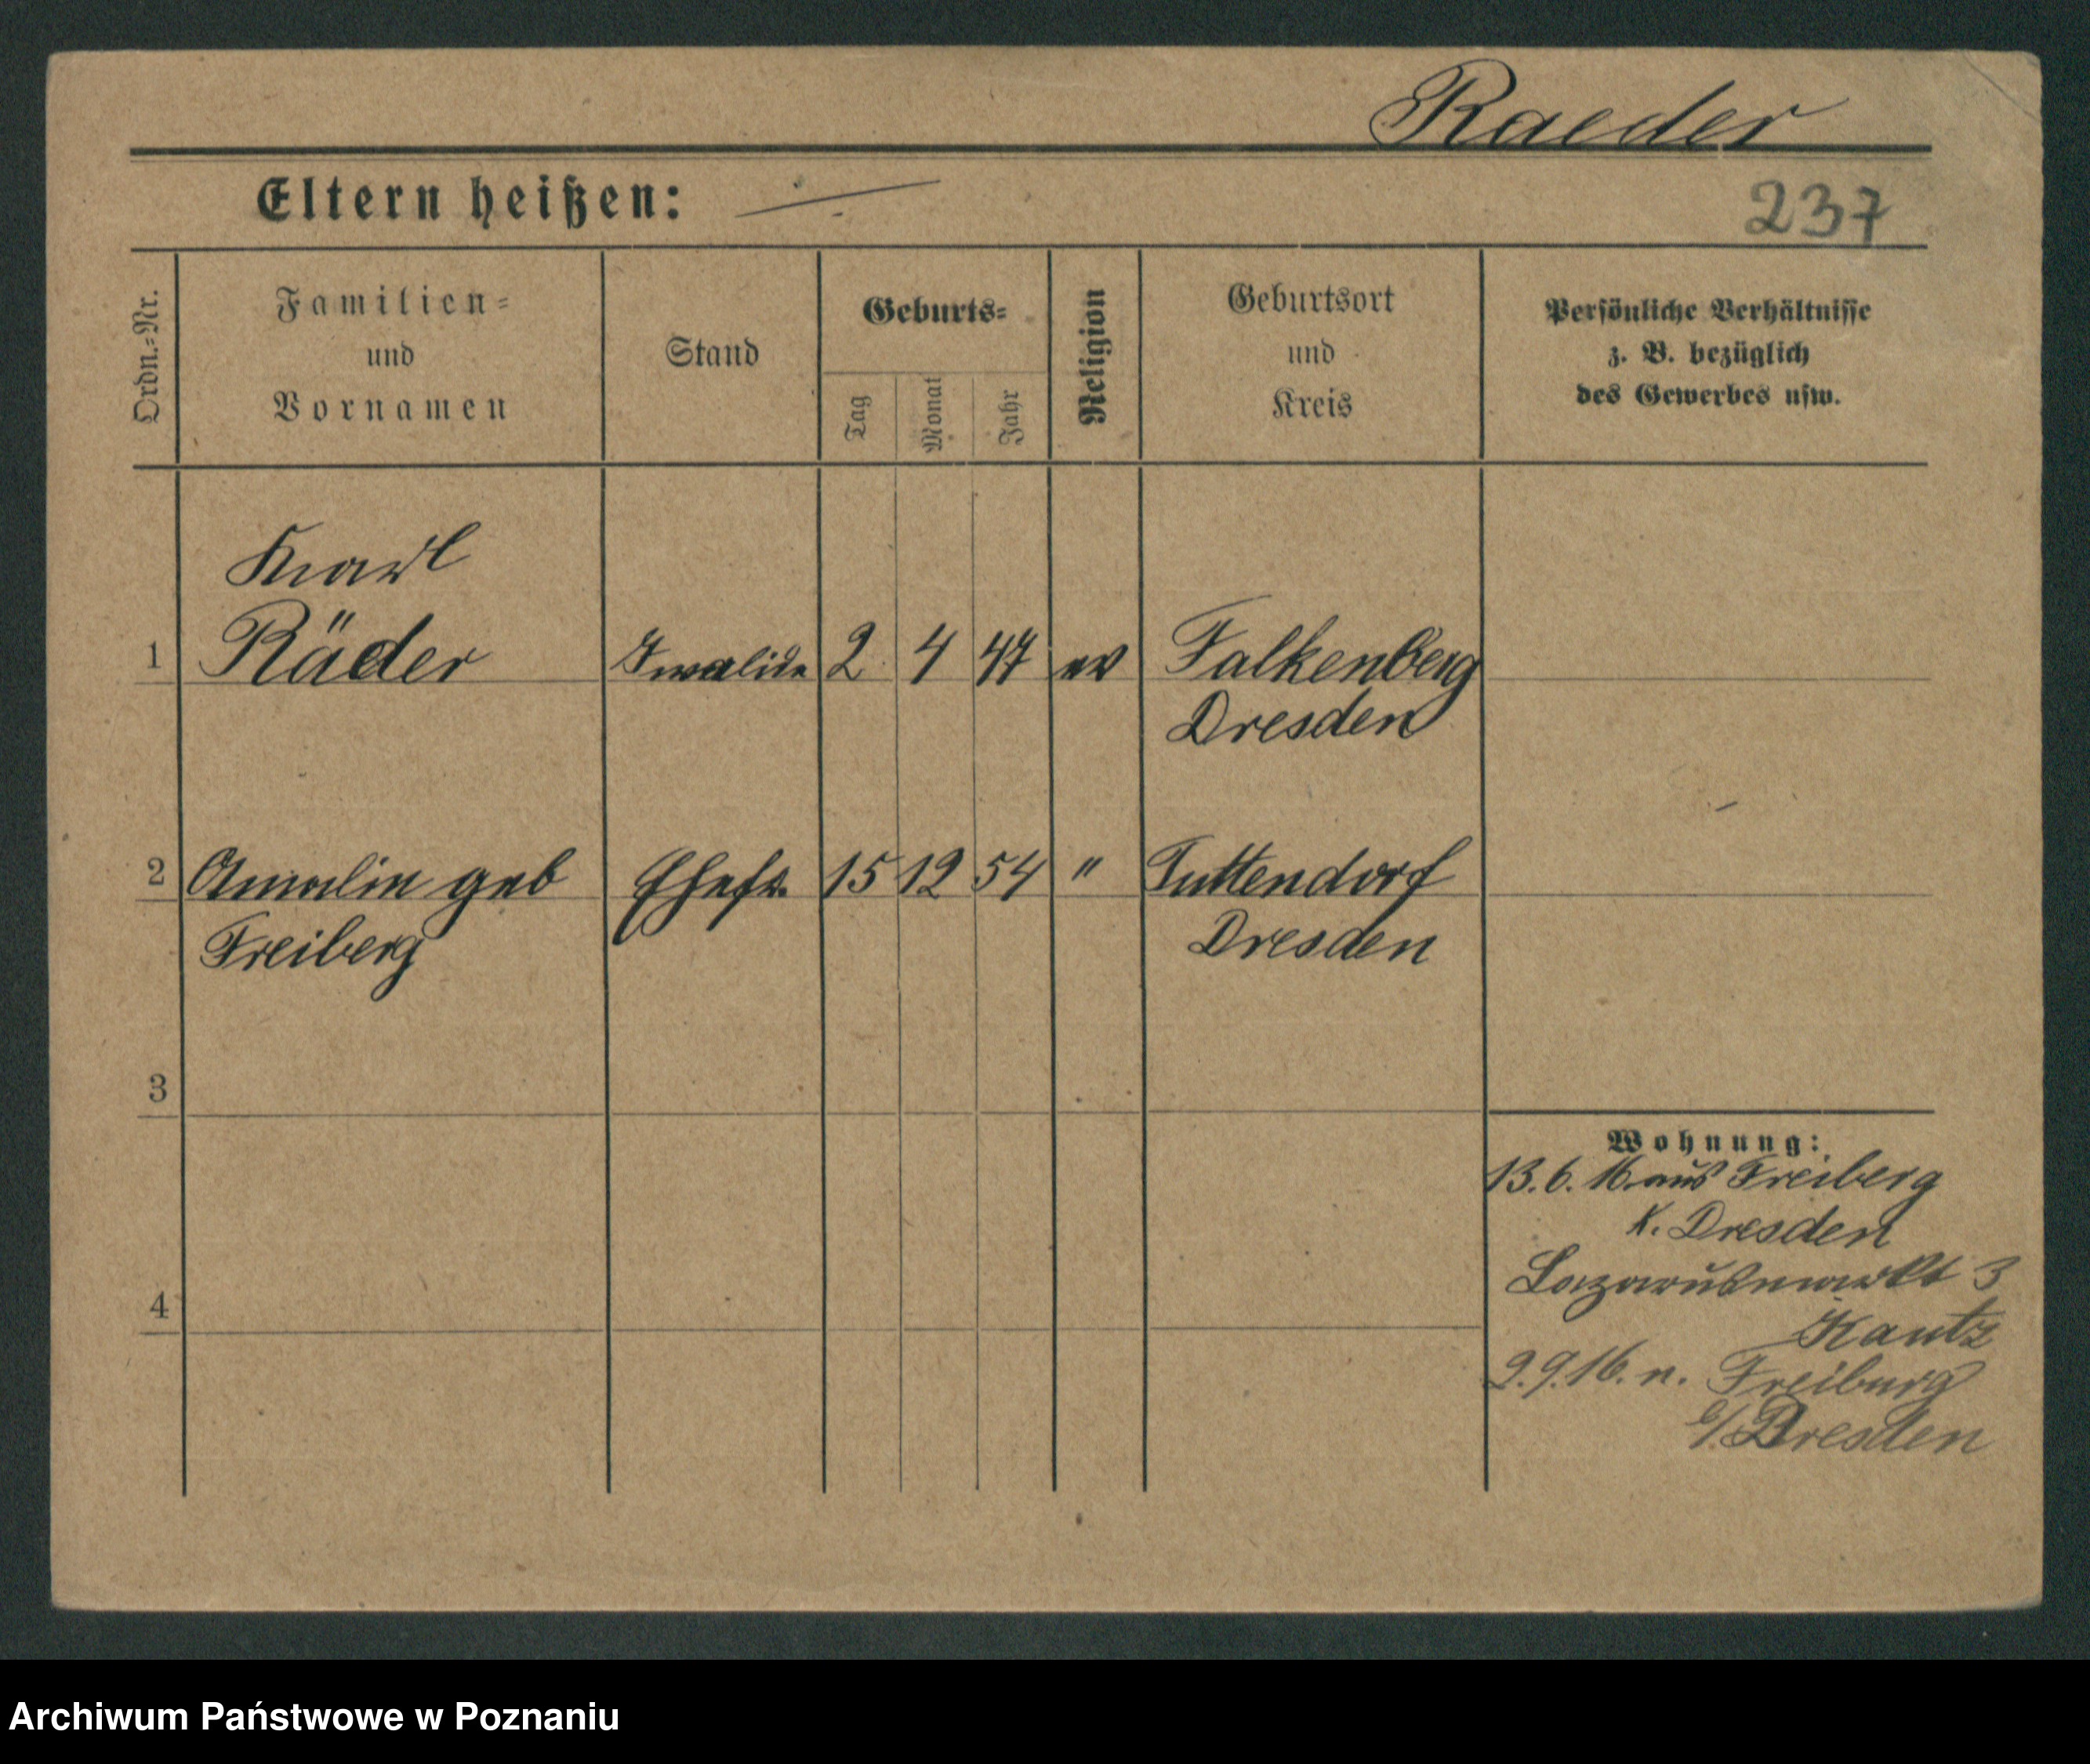 Raeder
Eltern heißen: —
237
Ordn.-Nr.
Familien-
und
Vornamen
Stand
Geburts-
Tag
Monat
Jahr
Religion
Geburtsort
und
Kreis
Persönliche Verhältnisse
z. B. bezüglich
des Gewerbes usw.
Karl
1 Räder Invalide 2 4 47 ev Falkenberg
Dresden
2 Amalie geb Ehefr. 15 12 54 " Tuttendorf
Freiberg Dresden
3
4
Wohnung:
13.6.16 aus Freiberg
K. Dresden
Lazarusmarkt 3
Kautz
2.9.16. n. Freiburg
Dresden
Archiwum Państwowe w Poznaniu